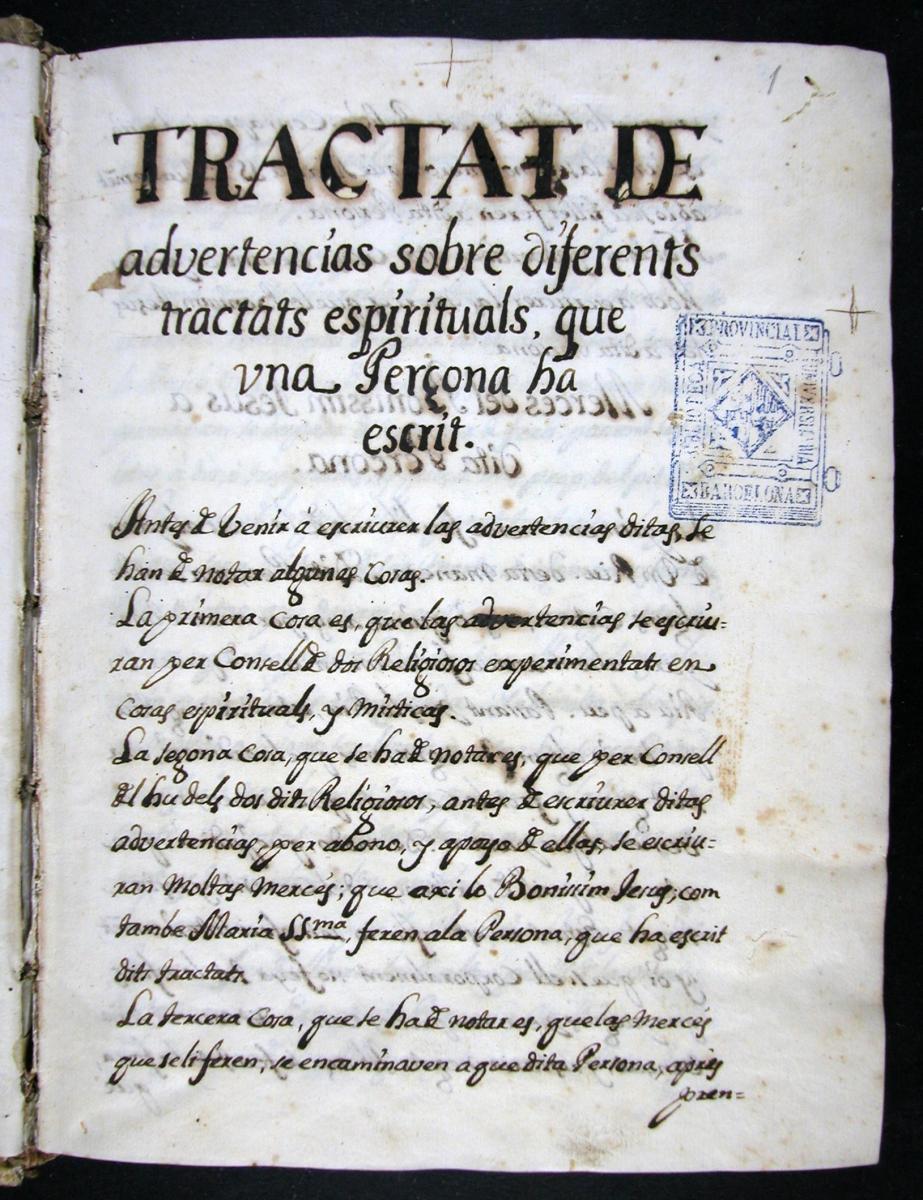 1
TRACTAT DE
advertencias sobre diferents
tractats espirituals, que
vna Perçona ha
escrit.
BIBLIOTECA
PROVINCIAL
UNIVERSITARIA
BARCELONA
Antes d Venir á escriurer las advertencias ditas, se
han d notar algunas Cosas.
La primera Cosa es, que las advertencias se escriu=
ran per Consell d dos Religiosos experimentats en
Cosas espirituals, y Misticas.
La segona Cosa, que se ha d notar es, que per Consell
dl hu dels dos dits Religiosos, antes d escriurer ditas
advertencias, per abono, y apoyo d ellas, se escriu=
ran Moltas Mercés; que axi lo Bonissim Jesus; com
tambe Maria SSma, feren a la Persona, que ha escrit
dits tractats.
La tercera Cosa, que se ha d notar es, que las Mercés
que se li feren, se encaminaven a que dita Persona, aprés
pren=